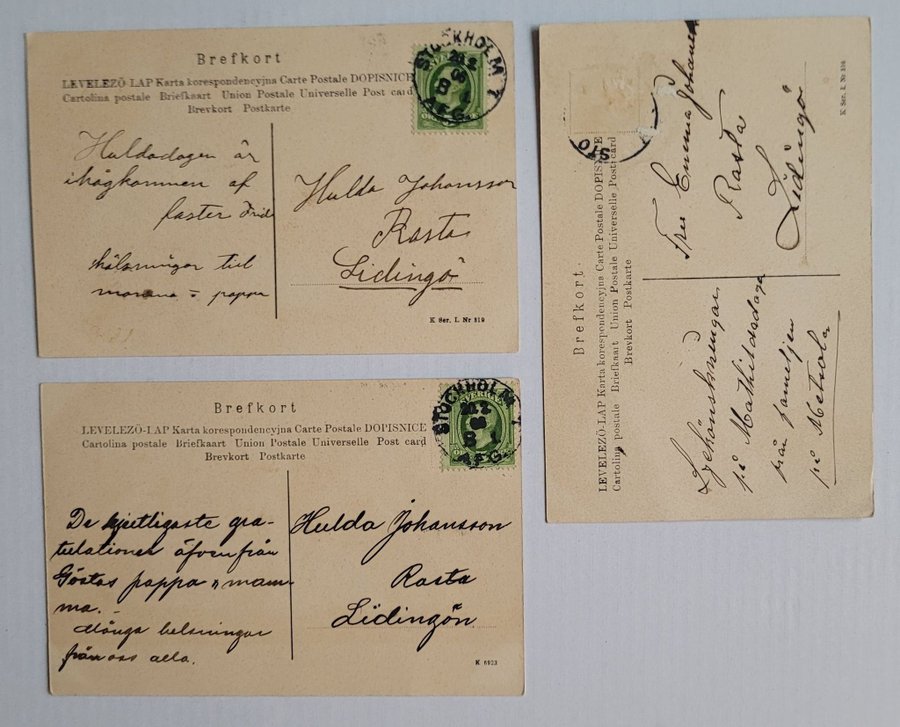 Brefkort
LEVELEZŐ-LAP Karta korespondencyjna Carte Postale DOPISNICE
Cartolina postale Briefkaart Union Postale Universelle Post card
Brevkort Postkarte
STOCKHOLM 1
20.2
06
8 1
AFG.
Huldadagen är
ihågkommen af
faster Frid
hälsningar till
mamma o pappa
Hulda Johansson
Rasta
Lidingö
K Ser. I. Nr 319
Brefkort
LEVELEZŐ-LAP Karta korespondencyjna Carte Postale DOPISNICE
Cartolina postale Briefkaart Union Postale Universelle Post card
Brevkort Postkarte
STOCKHOLM 1
SVERIGE
20.2
06
8 1
AFG.
De hjertligaste gra-
tulationer äfven från
Göstas pappa o mam-
ma. -
Många helsningar
från oss alla.
Hulda Johansson
Rasta
Lidingön
K 6923
Brefkort.
LEVELEZŐ-LAP Karta korespondencyjna Carte Postale DOPISNICE
Cartolina postale Briefkaart Union Postale Universelle Post card
Brevkort Postkarte
STO
Lyckönskningar
på Mathildadagen
från familjen
på
Fru Emma Johanss
Rasta
Lidingö
K Ser. I. Nr 316